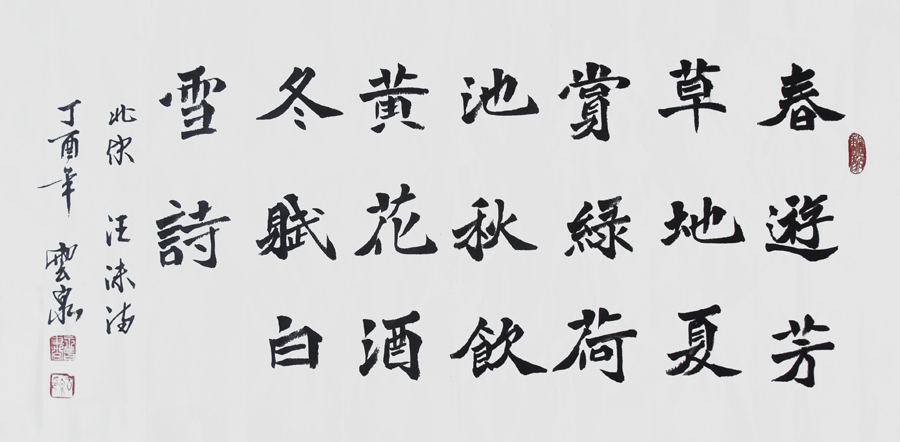 春遊芳
草地夏
賞綠荷
池秋飲
黄花酒
冬賦白
雪詩
北宋 汪洙诗
丁酉年 雲泉